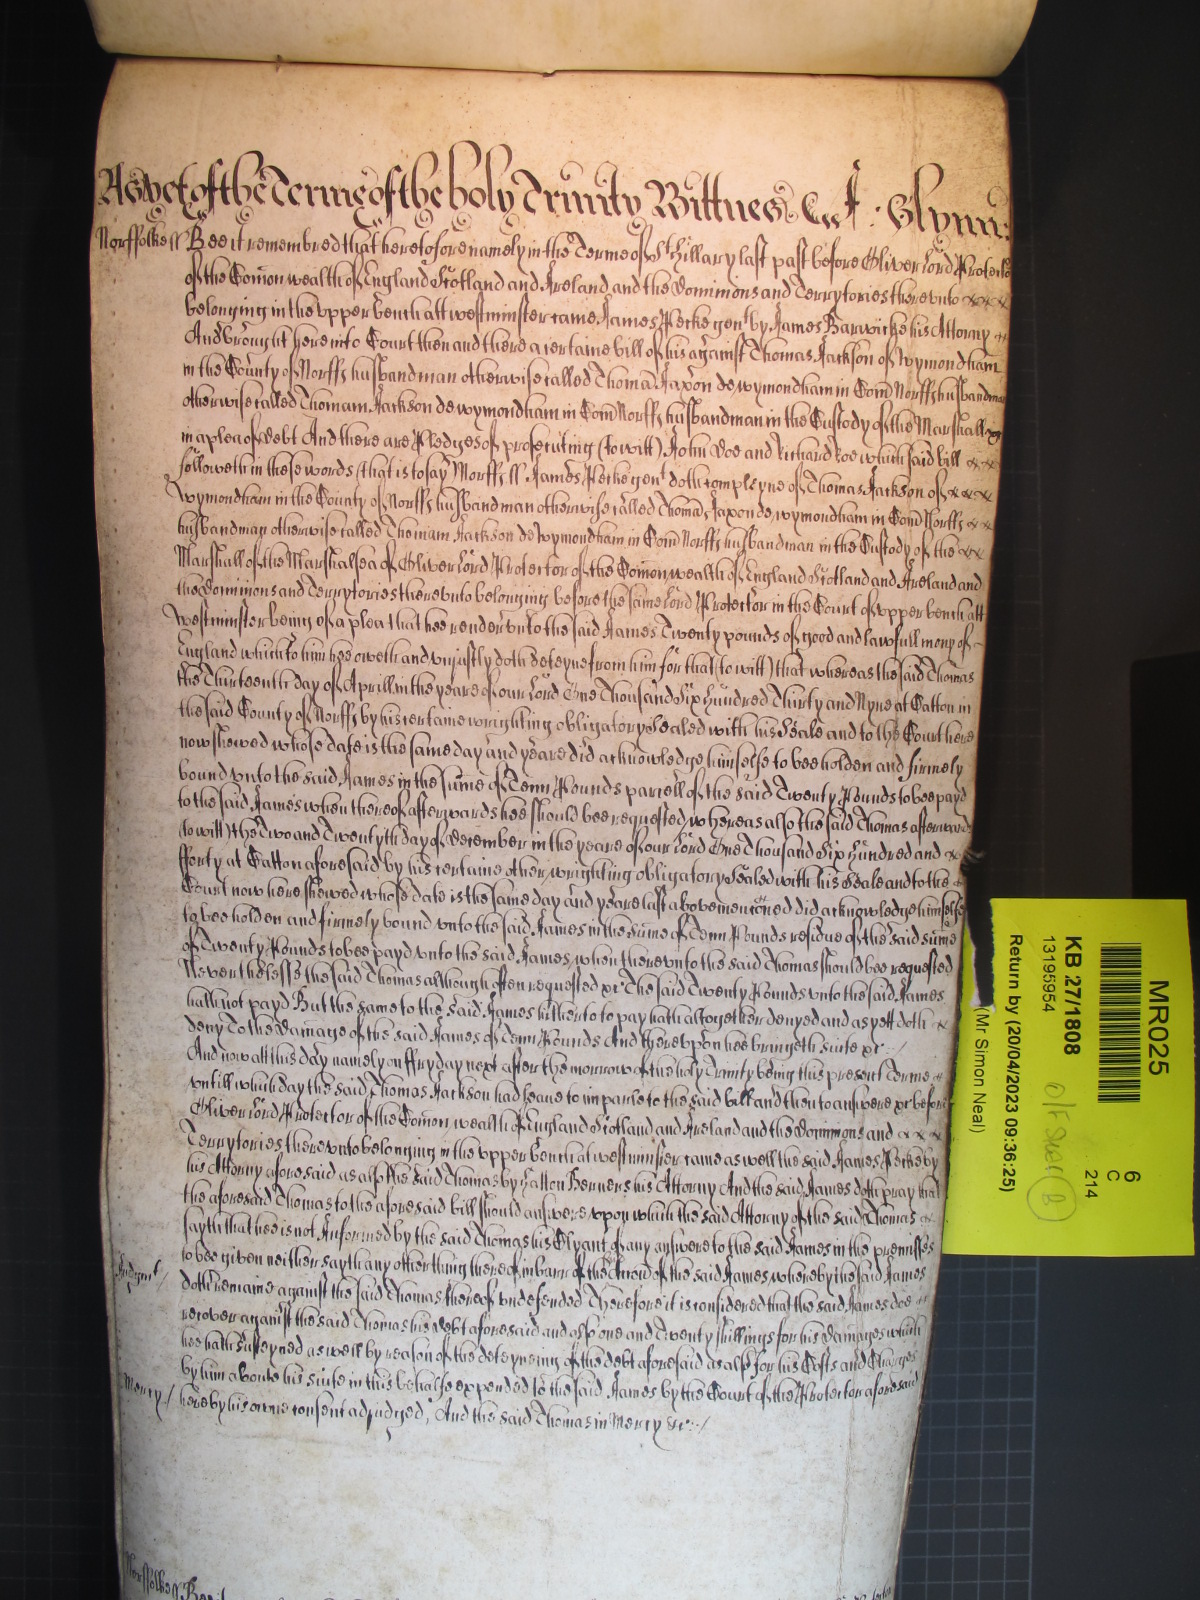 As yet of the Terme of the holy Trinity Wittnes : Glynn:
Norffolke ss Bee it remembred that heretofore namely in the Terme of St Hillary last past before Oliver Lord Protector
of the Comon wealth of England Scotland and Ireland and the Dominions and Terrytories therevnto
belonging in the vpper bench att westminster came James Pecke gent by James Barwicke his Attorny
And brought here into Court then and there a certaine bill of his against Thomas Jackson of wymondham
in the County of Norff husbandman otherwise called Thoma Jaxon de wymondham in Com Norff husbandman
otherwise called Thomam Jackson de wymondham in Com Norff husbandman in the Custody of the Marshall
in a plea of debt And there are Pledges of prosecuting (to witt) John Doe and Richard Roe which said bill
followeth in these words (that is to say) Norff ss James Pecke gent doth compleyne of Thomas Jackson of
wymondham in the County of Norff husbandman otherwise called Thoma Jaxon de wymondham in Com Norff
husbandman otherwise called Thomam Jackson de wymondham in Com Norff husbandman in the Custody of the
Marshall of the Marshalsea of Oliver Lord Protector of the Comon wealth of England Scotland and Ireland and
the Dominions and Terrytories therevnto belonging before the same Lord Protector in the Court of vpper bench att
westminster being of a plea that hee render vnto the said James Twenty pounds of good and lawfull mony of
England which to him hee oweth and vniustly doth deteyne from him for that (to witt) that whereas the said Thomas
the Thirteenth day of Aprill in the yeare of our Lord One Thousand Six hundred Thirty and Nyne at Catton in
the said County of Norff by his certaine wrighting obligatory Sealed with his Seale and to the Court here
now shewed whose date is the same day and yeare did acknowledge himselfe to bee holden and firmely
bound vnto the said James in the sume of Tenn Pounds parcell of the said Twenty Pounds to bee payd
to the said James when thereof afterwards hee should bee requested whereas also the said Thomas afterwards
(to witt) the Two and Twentyth day of December in the yeare of our Lord One Thousand Six hundred and
fforty at Catton aforesaid by his certaine other wrighting obligatory Sealed with his Seale and to the
Court now here shewed whose date is the same day and yeare last abovementioned did acknowledge himselfe
to bee holden and firmely bound vnto the said James in the sume of Tenn Pounds residue of the said sume
of Twenty Pounds to bee payd vnto the said James when therevnto the said Thomas should bee requested
Neverthelesse the said Thomas although often requested &c The said Twenty Pounds vnto the said James
hath not payd But the same to the said James hitherto to pay hath altogether denyed and as yett doth
deny To the Damage of the said James of Tenn Pounds And therevpon hee bringeth suite &c
And now att this day namely on ffryday next after the morrow of the holy Trinity being this present Terme
vntill which day the said Thomas Jackson had leave to imparle to the said bill and then to answere &c before
Oliver Lord Protector of the Comon wealth of England Scotland and Ireland and the Dominions and
Terrytories therevnto belonging in the vpper bench at westminster came as well the said James Pecke by
his Attorny aforesaid as also the said Thomas by Hatton Berners his Attorny And the said James doth pray that
the aforesaid Thomas to the aforesaid bill should answere vpon which the said Attorny of the said Thomas
sayth that hee is not Informed by the said Thomas his Clyant of any answere to the said James in the premisses
to bee given neither sayth any other thing thereof in barr of the said James whereby the said James
Judgmt doth remaine against the said Thomas thereof vndefended Therefore it is considered that the said James doe
recover against the said Thomas his debt aforesaid and also one and Twenty shillings for his Damages which
hee hath susteyned as well by reason of the deteyneing of the debt aforesaid as also for his Costs and Charges
by him aboute his suite in this behalfe expended to the said James by the Court of the Protector aforesaid
Mercy here by his owne consent adjudged, And the said Thomas in Mercy &c
Norffolke ss Bee it
MR025
6
C
214
KB 27/1808
13195954
Return by (20/04/2023 09:36:25)
(Mr. Simon Neal)